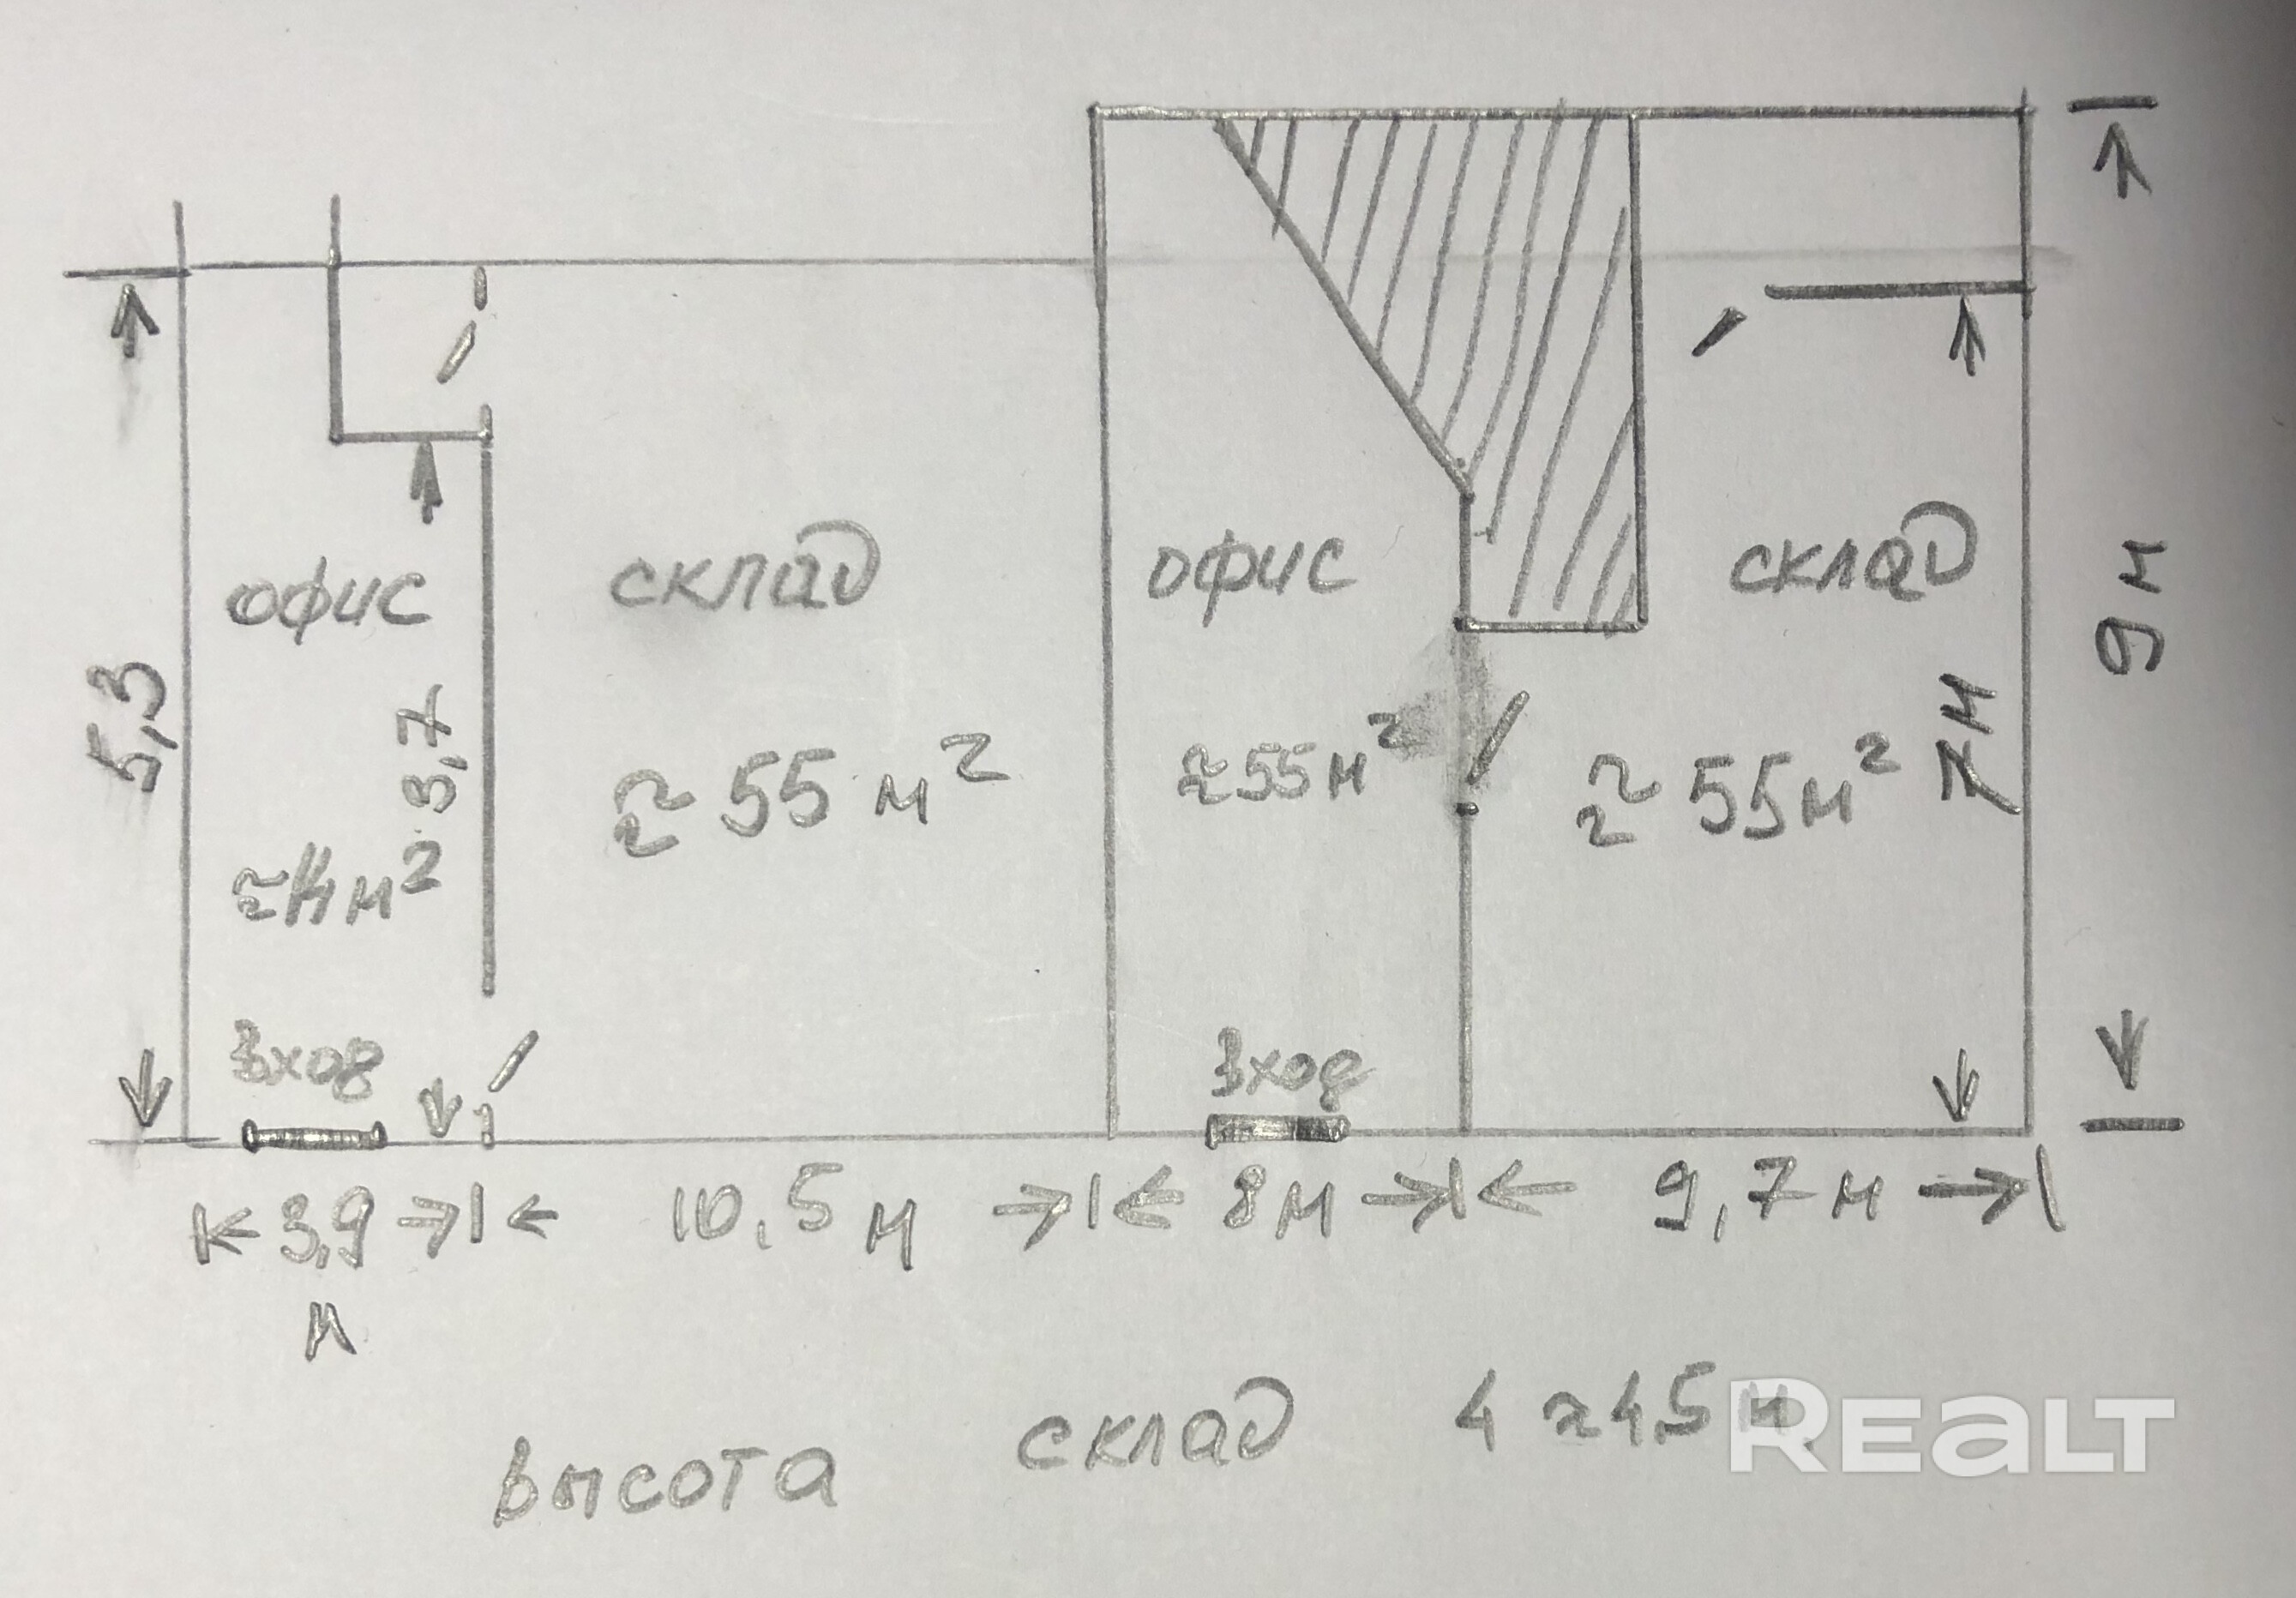 офис
склад
офис
склад
5,3
3,7
≈ 55 м²
≈55м²
≈ 55м²
7м
9м
вход
вход
3,9
м
10,5 м
8м
9,7 м
высота
склад
4 ≈ 4,5 м
REALT